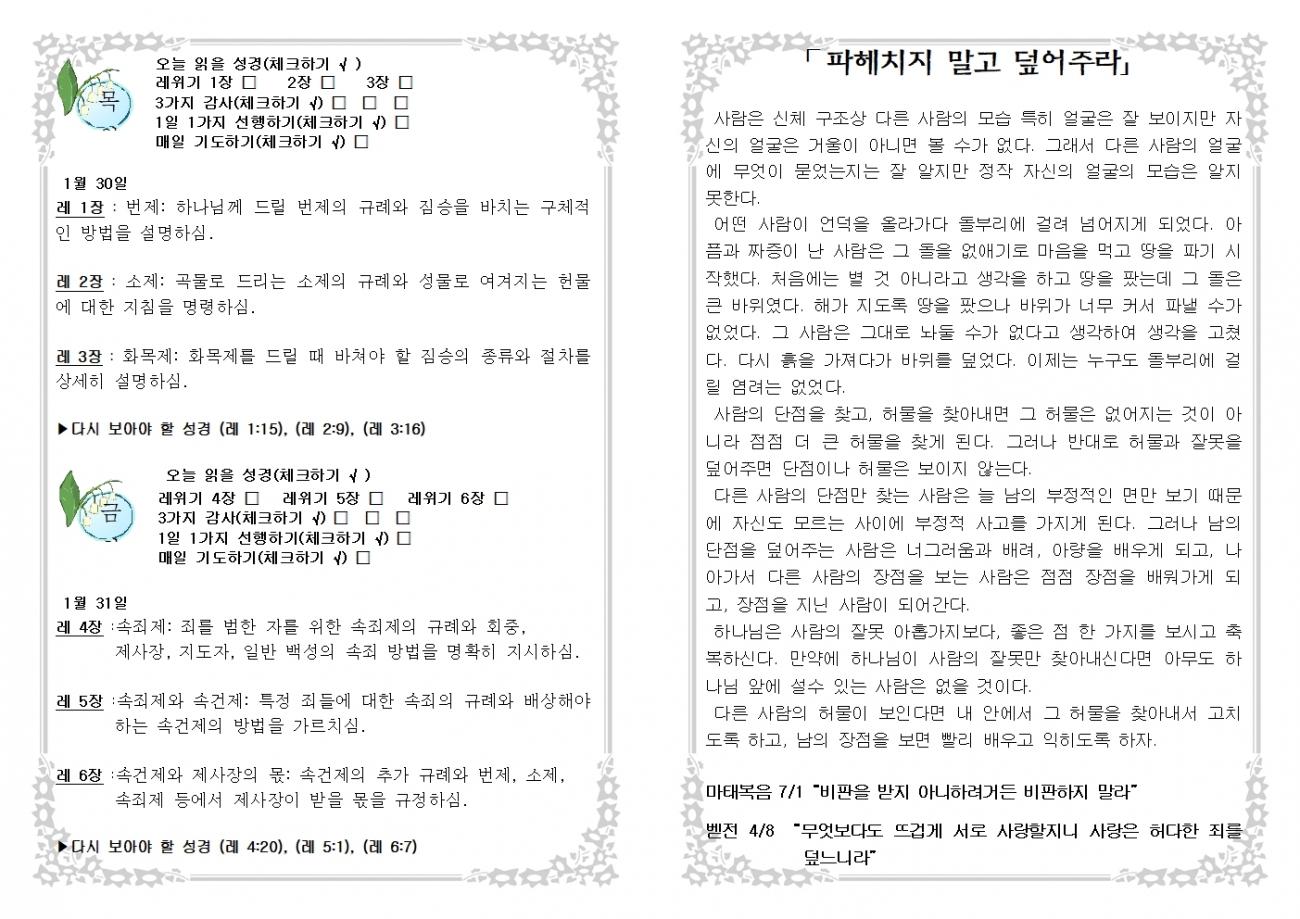 목
오늘 읽을 성경(체크하기 √ )
레위기 1장 □ 2장 □ 3장 □
3가지 감사(체크하기 √) □ □ □
1일 1가지 선행하기(체크하기 √) □
매일 기도하기(체크하기 √) □
1월 30일
레 1장 : 번제: 하나님께 드릴 번제의 규례와 짐승을 바치는 구체적
인 방법을 설명하심.
레 2장 : 소제: 곡물로 드리는 소제의 규례와 성물로 여겨지는 헌물
에 대한 지침을 명령하심.
레 3장 : 화목제: 화목제를 드릴 때 바쳐야 할 짐승의 종류와 절차를
상세히 설명하심.
▶다시 보아야 할 성경 (레 1:15), (레 2:9), (레 3:16)
금
오늘 읽을 성경(체크하기 √ )
레위기 4장 □ 레위기 5장 □ 레위기 6장 □
3가지 감사(체크하기 √) □ □ □
1일 1가지 선행하기(체크하기 √) □
매일 기도하기(체크하기 √) □
1월 31일
레 4장 :속죄제: 죄를 범한 자를 위한 속죄제의 규례와 회중,
제사장, 지도자, 일반 백성의 속죄 방법을 명확히 지시하심.
레 5장 :속죄제와 속건제: 특정 죄들에 대한 속죄의 규례와 배상해야
하는 속건제의 방법을 가르치심.
레 6장 :속건제와 제사장의 몫: 속건제의 추가 규례와 번제, 소제,
속죄제 등에서 제사장이 받을 몫을 규정하심.
▶다시 보아야 할 성경 (레 4:20), (레 5:1), (레 6:7)
「 파헤치지 말고 덮어주라」
사람은 신체 구조상 다른 사람의 모습 특히 얼굴은 잘 보이지만 자
신의 얼굴은 거울이 아니면 볼 수가 없다. 그래서 다른 사람의 얼굴
에 무엇이 묻었는지는 잘 알지만 정작 자신의 얼굴의 모습은 알지
못한다.
어떤 사람이 언덕을 올라가다 돌부리에 걸려 넘어지게 되었다. 아
픔과 짜증이 난 사람은 그 돌을 없애기로 마음을 먹고 땅을 파기 시
작했다. 처음에는 별 것 아니라고 생각을 하고 땅을 팠는데 그 돌은
큰 바위였다. 해가 지도록 땅을 팠으나 바위가 너무 커서 파낼 수가
없었다. 그 사람은 그대로 놔둘 수가 없다고 생각하여 생각을 고쳤
다. 다시 흙을 가져다가 바위를 덮었다. 이제는 누구도 돌부리에 걸
릴 염려는 없었다.
사람의 단점을 찾고, 허물을 찾아내면 그 허물은 없어지는 것이 아
니라 점점 더 큰 허물을 찾게 된다. 그러나 반대로 허물과 잘못을
덮어주면 단점이나 허물은 보이지 않는다.
다른 사람의 단점만 찾는 사람은 늘 남의 부정적인 면만 보기 때문
에 자신도 모르는 사이에 부정적 사고를 가지게 된다. 그러나 남의
단점을 덮어주는 사람은 너그러움과 배려, 아량을 배우게 되고, 나
아가서 다른 사람의 장점을 보는 사람은 점점 장점을 배워가게 되
고, 장점을 지닌 사람이 되어간다.
하나님은 사람의 잘못 아홉가지보다, 좋은 점 한 가지를 보시고 축
복하신다. 만약에 하나님이 사람의 잘못만 찾아내신다면 아무도 하
나님 앞에 설수 있는 사람은 없을 것이다.
다른 사람의 허물이 보인다면 내 안에서 그 허물을 찾아내서 고치
도록 하고, 남의 장점을 보면 빨리 배우고 익히도록 하자.
마태복음 7/1 "비판을 받지 아니하려거든 비판하지 말라"
벧전 4/8 "무엇보다도 뜨겁게 서로 사랑할지니 사랑은 허다한 죄를
덮느니라"